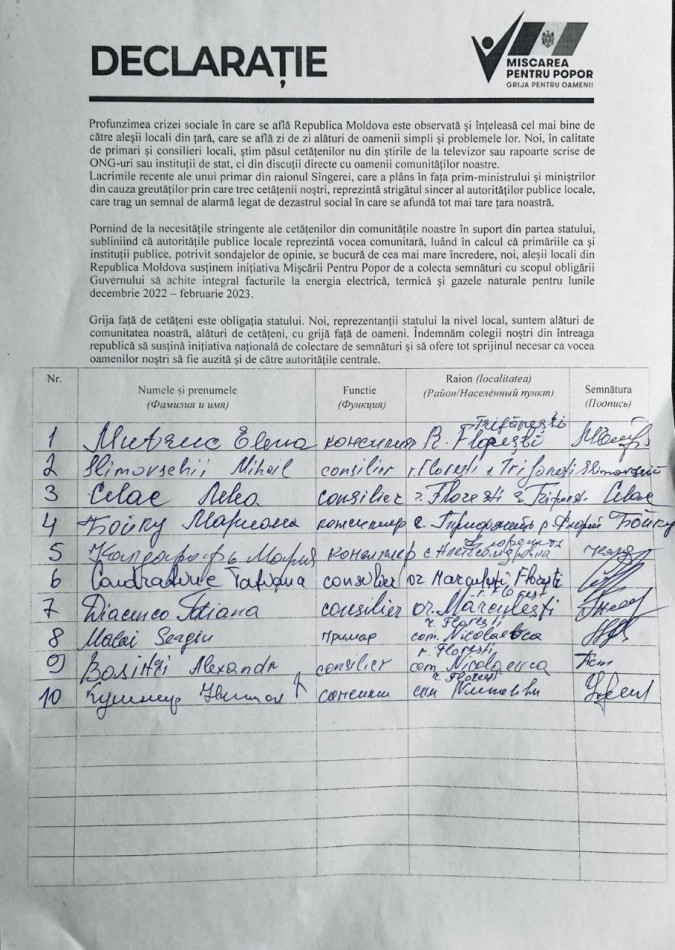 DECLARAȚIE
MISCAREA
PENTRU POPOR
GRIJA PENTRU OAMENI!
Profunzimea crizei sociale în care se află Republica Moldova este observată și înțeleasă cel mai bine de
către aleșii locali din țară, care se află zi de zi alături de oamenii simpli și problemele lor. Noi, în calitate
de primari și consilieri locali, știm păsul cetățenilor nu din știrile de la televizor sau rapoarte scrise de
ONG-uri sau instituții de stat, ci din discuții directe cu oamenii comunităților noastre.
Lacrimile recente ale unui primar din raionul Sîngerei, care a plâns în fața prim-ministrului și miniștrilor
din cauza greutăților prin care trec cetățenii noștri, reprezintă strigătul sincer al autorităților publice locale,
care trag un semnal de alarmă legat de dezastrul social în care se afundă tot mai tare țara noastră.
Pornind de la necesitățile stringente ale cetățenilor din comunitățile noastre în suport din partea statului,
subliniind că autoritățile publice locale reprezintă vocea comunitară, luând în calcul că primăriile ca și
instituții publice, potrivit sondajelor de opinie, se bucură de cea mai mare încredere, noi, aleșii locali din
Republica Moldova susținem inițiativa Mișcării Pentru Popor de a colecta semnături cu scopul obligării
Guvernului să achite integral facturile la energia electrică, termică și gazele naturale pentru lunile
decembrie 2022 – februarie 2023.
Grija față de cetățeni este obligația statului. Noi, reprezentanții statului la nivel local, suntem alături de
comunitatea noastră, alături de cetățeni, cu grijă față de oameni. Îndemnăm colegii noștri din întreaga
republică să susțină inițiativa națională de colectare de semnături și să ofere tot sprijinul necesar ca vocea
oamenilor noștri să fie auzită și de către autoritățile centrale.
Nr. Numele și prenumele Functie Raion (localitatea) Semnătura
(Фамилия и имя) (Функция) (Район/Населённый пункт) (Подпись)
Trifănești
1 Elena консилиер R. Florești
2 Slimovschii Mihail consilier r. Florești s. Trifănești
3 Celac consilier r. Florești s. Celac
4 Бойку Мариана консилиер с. Бойку
5 Мария консилиер с
6 Tatiana consilier or Mărculești Florești
r. Florești
7 Diacenco Tatiana consilier or. Mărculești
r. Florești
8 Malai Sergiu примар com. Nicolaevca
r. Florești
9 Alexandr consilier com Nicolaevca
r. Florești
10